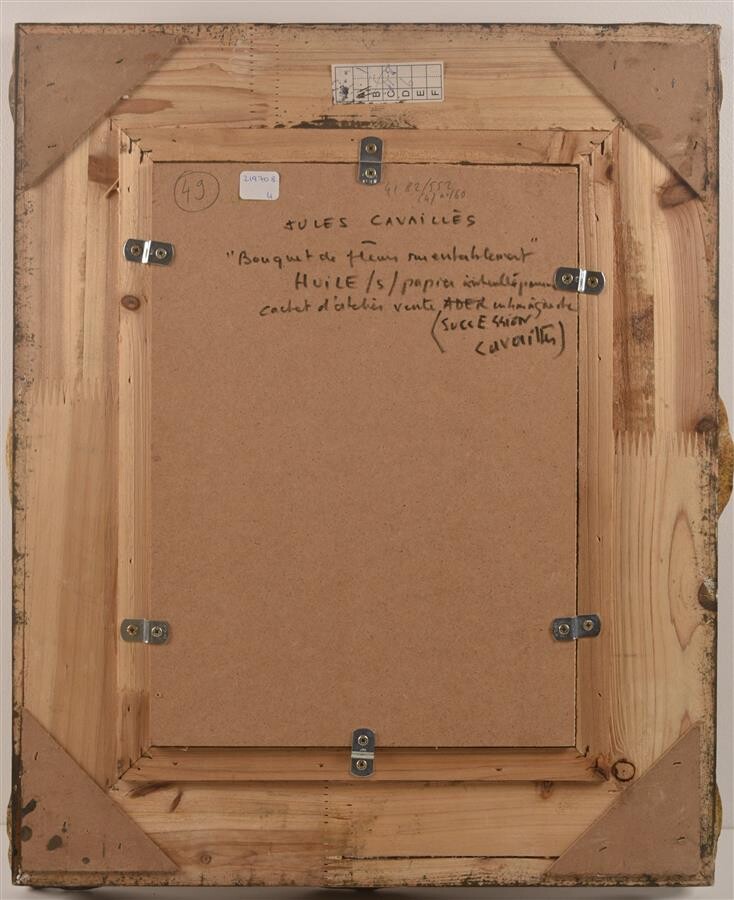 B C D E F
49
219708
4
4182/552
(4) n°160
JULES CAVAILLÈS
"Bouquet de fleurs sur entablement"
HUILE /s/ papier
cachet d'atelier vente ADER
(SUCCESSION
Cavaillès)